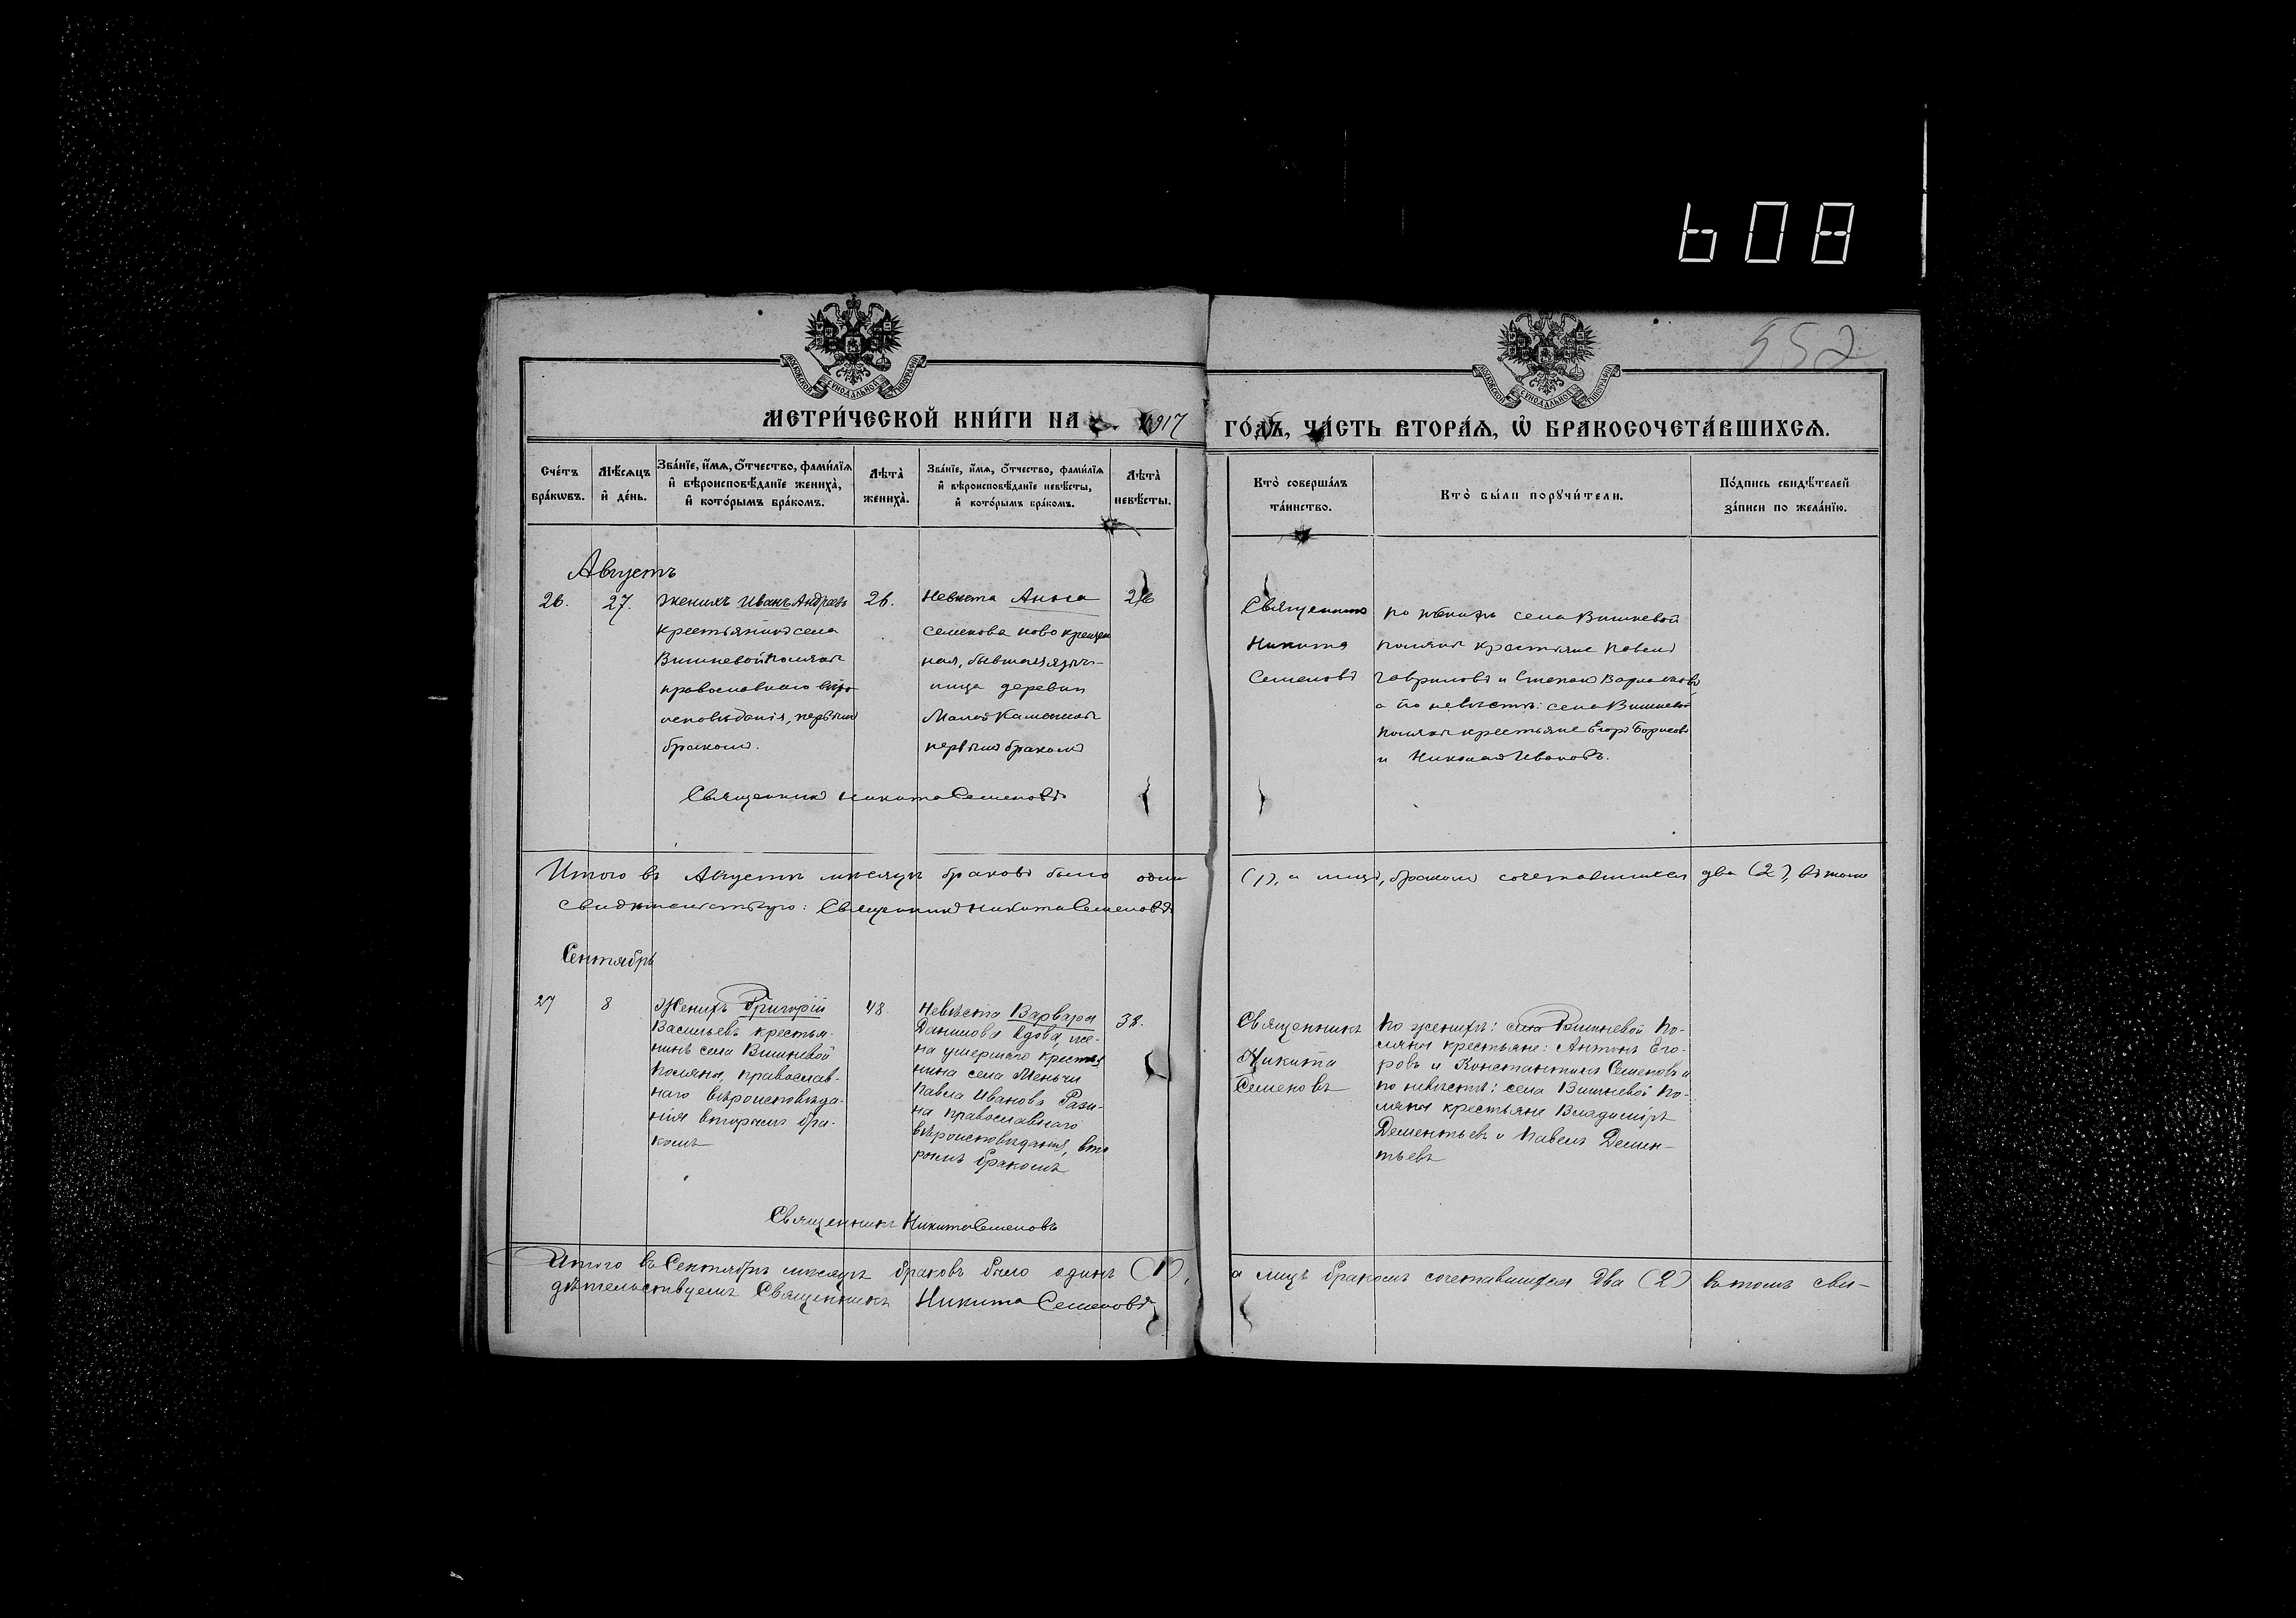 608
552
МОСКОВСКОЙ СѴНОДАЛЬНОЙ ТИПОГРАФІИ
МОСКОВСКОЙ СѴНОДАЛЬНОЙ ТИПОГРАФІИ
МЕТРИ́ЧЕСКОЙ КНИ́ГИ НА 1917 ГО́ДЪ, ЧА́СТЬ ВТОРА́Ѧ, Ѡ҆ БРАКОСОЧЕТА́ВШИХСѦ.
Сче́тъ бра́кѡвъ.
Мѣ́сѧцъ и҆ де́нь.
Зва́нїе, и҆́мѧ, ѻ҆́тчество, фами́лїѧ и҆ вѣроисповѣ́данїе жениха̀, и҆ кото́рымъ бра́комъ.
Лѣ́та̀ жениха̀.
Зва́нїе, и҆́мѧ, ѻ҆́тчество, фами́лїѧ и҆ вѣроисповѣ́данїе невѣ́сты, и҆ кото́рымъ бра́комъ.
Лѣ́та̀ невѣ́сты.
Кто̀ соверша́лъ та́инство.
Кто̀ бы́ли порꙋчи́тели.
По́дпись свидѣ́телей за́писи по жела́нїю.
Августъ
26.
27.
Женихъ Иванъ Андреевъ
крестьянинъ села
Вишневой Поляны
православнаго вѣро-
исповѣданія, первымъ
бракомъ.
26.
Невѣста Анна
Семенова ново крещен
ная, бывшая языч-
ница деревни
Малой Каменки
первымъ бракомъ
26
Священникъ Никита Семеновъ
Священникъ
Никита
Семеновъ
по женихѣ села Вишневой
Поляны крестьяне Павелъ
Гавриловъ и Степанъ
а по невѣстѣ: села Вишневой
Поляны крестьяне Егоръ Борисовъ
и Николай Ивановъ.
Итого въ Августѣ мѣсяцѣ браковъ было одинъ (1), а лицъ, бракомъ сочетавшихся два (2), въ томъ
свидѣтельствую: Священникъ Никита Семеновъ
Сентябрь
27
8
Женихъ Григорій
Васильевъ крестья-
нинъ села Вишневой
Поляны, православ-
наго вѣроисповѣда-
нія вторымъ бра-
комъ
48.
Невѣста Варвара
Данилова вдова, же-
на умершаго крестья
нина села Меньчи
Павла Иванова Рази-
на православнаго
вѣроисповѣданія, вто
рымъ бракомъ
38.
Священникъ Никита Семеновъ
Священникъ
Никита
Семеновъ
По женихѣ: села Вишневой По-
ляны крестьяне: Антонъ Его-
ровъ и Константинъ Семеновъ и
по невѣстѣ: села Вишневой По-
ляны крестьяне Владиміръ
Дементьевъ и Павелъ Демен-
тьевъ
Итого въ Сентябрѣ мѣсяцѣ браковъ было одинъ (1), а лицъ бракомъ сочетавшихся два (2) въ томъ сви-
дѣтельствуемъ Священникъ Никита Семеновъ